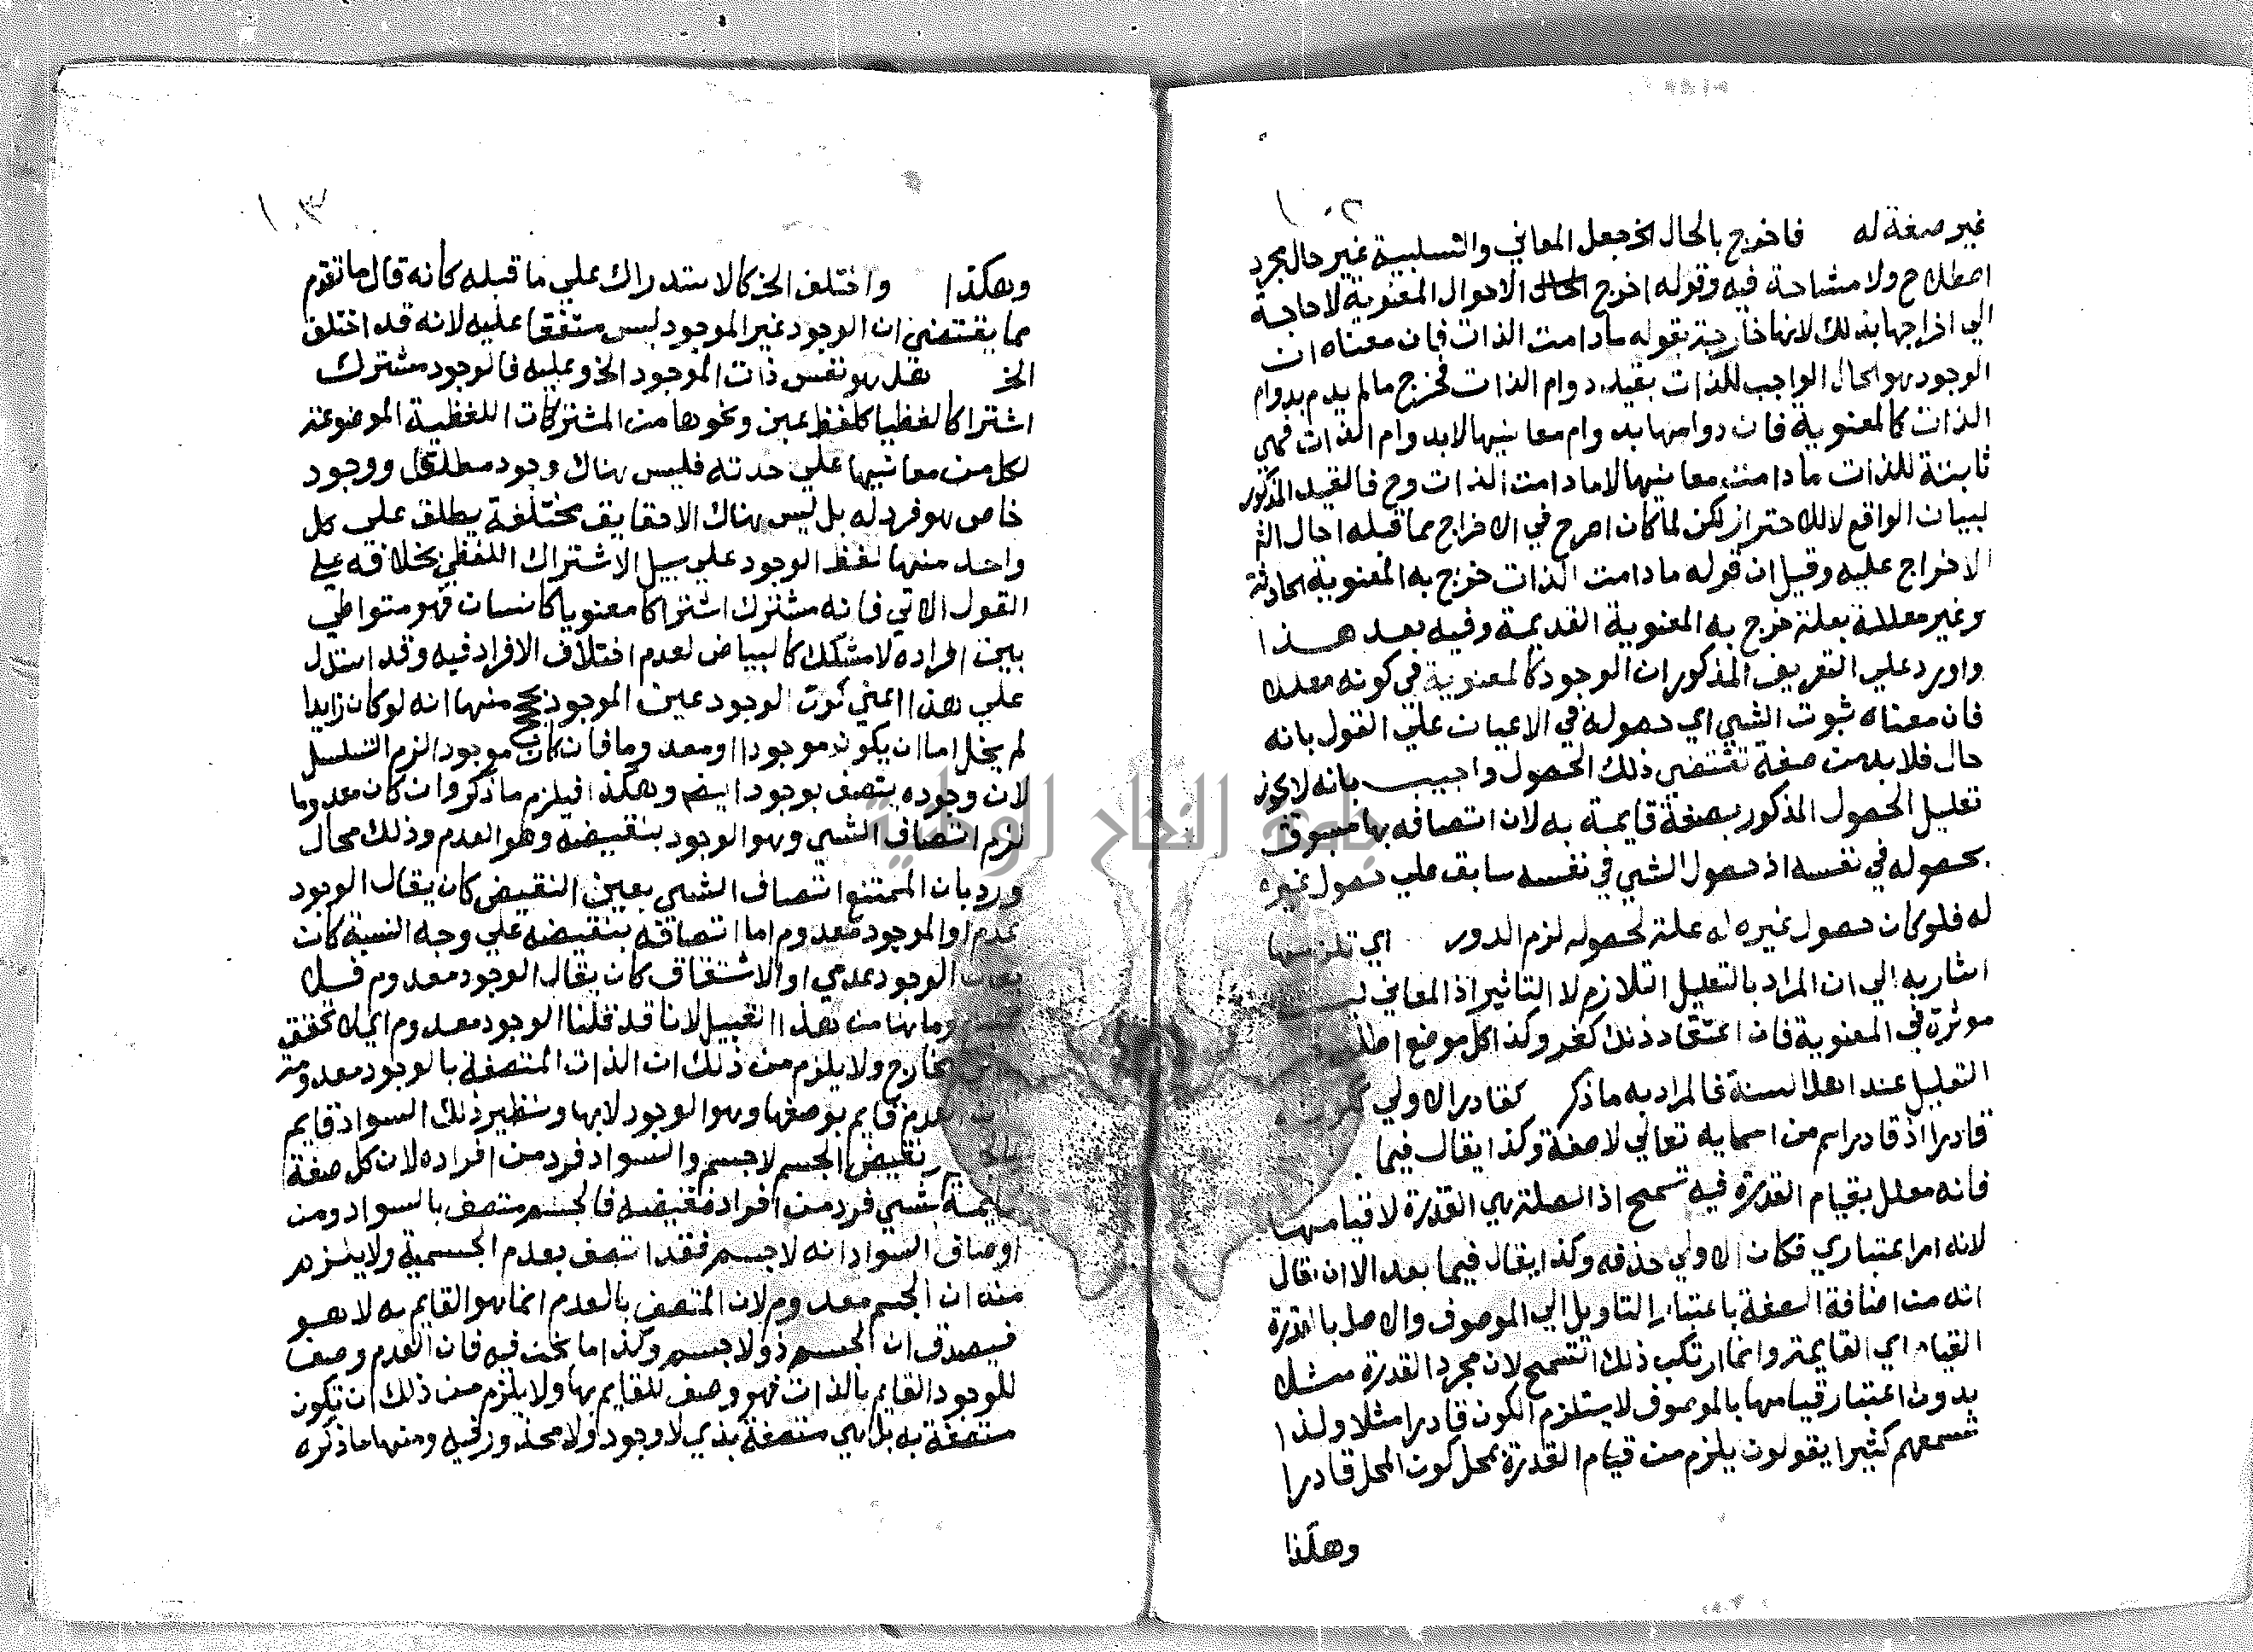 ١٠٢
غير صفة له فاخرج بالحال الخ جعل المعاني والسلبية غير حال مجرد
اصطلاح ولا مشاحة فيه وقوله اخرج الحال الاحوال المعنوية لا حاجة
الي اخراجها بذلك لانها خارجة بقوله مادامت الذات فان معناه ان
الوجود هو الحال الواجب للذات بقيد دوام الذات فخرج مالم يدم بدوام
الذات كالمعنوية فان دوامها بدوام معانيها لا بدوام الذات فهي
ثابتة للذات ما دامت معانيها لا مادامت الذات وح فالقيد المذكور
لبيان الواقع لا للاحتراز لكن لما كان اصرح في الاخراج مما قبله احال الش
الاخراج عليه وقيل ان قوله مادامت الذات خرج به المعنوية الحادثة
وغير معللة بعلة خرج به المعنوية القديمة وفيه بعد هذا
واورد علي التعريف المذكور ان الوجود كالمعنوية في كونه معللا
فان معناه ثبوت الشي اي حصوله في الاعيان علي القول بانه
حال فلا بد من صفة تقتضي ذلك الحصول واجيب بانه لا يجوز
تعليل الحصول المذكور بصفة قايمة به لان اتصافه بها مسبوق
بحصوله في نفسه اذ حصول الشي في نفسه سابق علي حصول غيره
له فلو كان حصول غيره له علة لحصوله لزم الدور اي تلازمها
اشار به الي ان المراد بالتعليل التلازم لا التاثير اذ المعاني ليست
موثرة في المعنوية فان اعتقاد ذلك كفر وكذا كل موضع اطلق فيه
التعليل عند اهل السنة فالمراد به ما ذكر كقادر الاولي ككونه
قادرا اذ قادر اسم من اسمايه تعالي لا صفة وكذا يقال فيما
فانه معلل بقيام القدرة فيه تسمح اذ العلة هي القدرة لا قيامها
لانه امر اعتباري فكان الاولي حذفه وكذا يقال فيما بعد الا ان يقال
انه من اضافة الصفة باعتبار التاويل الي الموصوف والاصل بالقدرة
القيام اي القايمة وانما ارتكب ذلك التسمح لان مجرد القدرة مثلا
بدون اعتبار قيامها بالموصوف لا يستلزم الكون قادرا مثلا ولذا
تسمعهم كثيرا يقولون يلزم من قيام القدرة بمحل كون المحل قادرا
وهكذا
١٠٣
وهكذا واختلف الخ كالاستدراك علي ما قبله كانه قال ما تقدم
مما يقتضي ان الوجود غير الموجود ليس متفقا عليه لانه قد اختلف
الخ فقيل هو نفس ذات الموجود الخ وعليه فالوجود مشترك
اشتراكا لفظيا كلفظ عين ونحوها من المشتركات اللفظية الموضوعة
لكل من معانيها علي حدته فليس هناك وجود مطلق كلي ووجود
خاص هو فرد له بل ليس هناك الا حقايق مختلفة يطلق علي كل
واحد منها لفظ الوجود علي سبيل الاشتراك اللفظي بخلافه علي
القول الاتي فانه مشترك اشتراكا معنويا كانسان فهو متواطي
بين افراده لا مشكك كالبياض لعدم اختلاف الافراد فيه وقد استدل
علي هذا اعني كون الوجود عين الموجود بحجج منها انه لو كان زايدا
لم يخل اما ان يكون موجودا او معدوما فان كان موجودا لزم التسلسل
لان وجوده يتصف بوجود ايضا وهكذا فيلزم ما ذكر وان كان معدوما
لزم اتصاف الشي وهو الوجود بنقيضه وهو العدم وذلك محال
ورد بان الممتنع اتصاف الشي بعين النقيض كان يقال الوجود
عدم او الموجود معدوم اما اتصافه بنقيضه علي وجه النسبة كان
يقال الوجود عدمي او الاشتقاق كان يقال الوجود معدوم فلا
وما هنا من هذا القبيل لانا قد قلنا الوجود معدوم اي لا تحقق
الخارج ولا يلزم من ذلك ان الذات المتصفة بالوجود معدومة
العدم قايم بوصفها وهو الوجود لا بها ونظير ذلك السواد قايم
بالجسم ونقيض الجسم لا جسم والسواد فرد من افراده لان كل صفة
قايمة بشي فرد من افراد نقيضه فالجسم متصف بالسواد ومن
اوصاف السواد انه لا جسم فقد اتصف بعدم الجسمية ولا يلزم
منه ان الجسم معدوم لان المتصف بالعدم انما هو القايم به لا هو
فيصدق ان الجسم ذو لا جسم وكذا ما نحن فيه فان العدم وصف
للوجود القايم بالذات فهو وصف للقايم بها ولا يلزم من ذلك ان تكون
متصفة به بل هي متصفة بذي لا وجود ولا محذور فيه ومنها ما ذكره